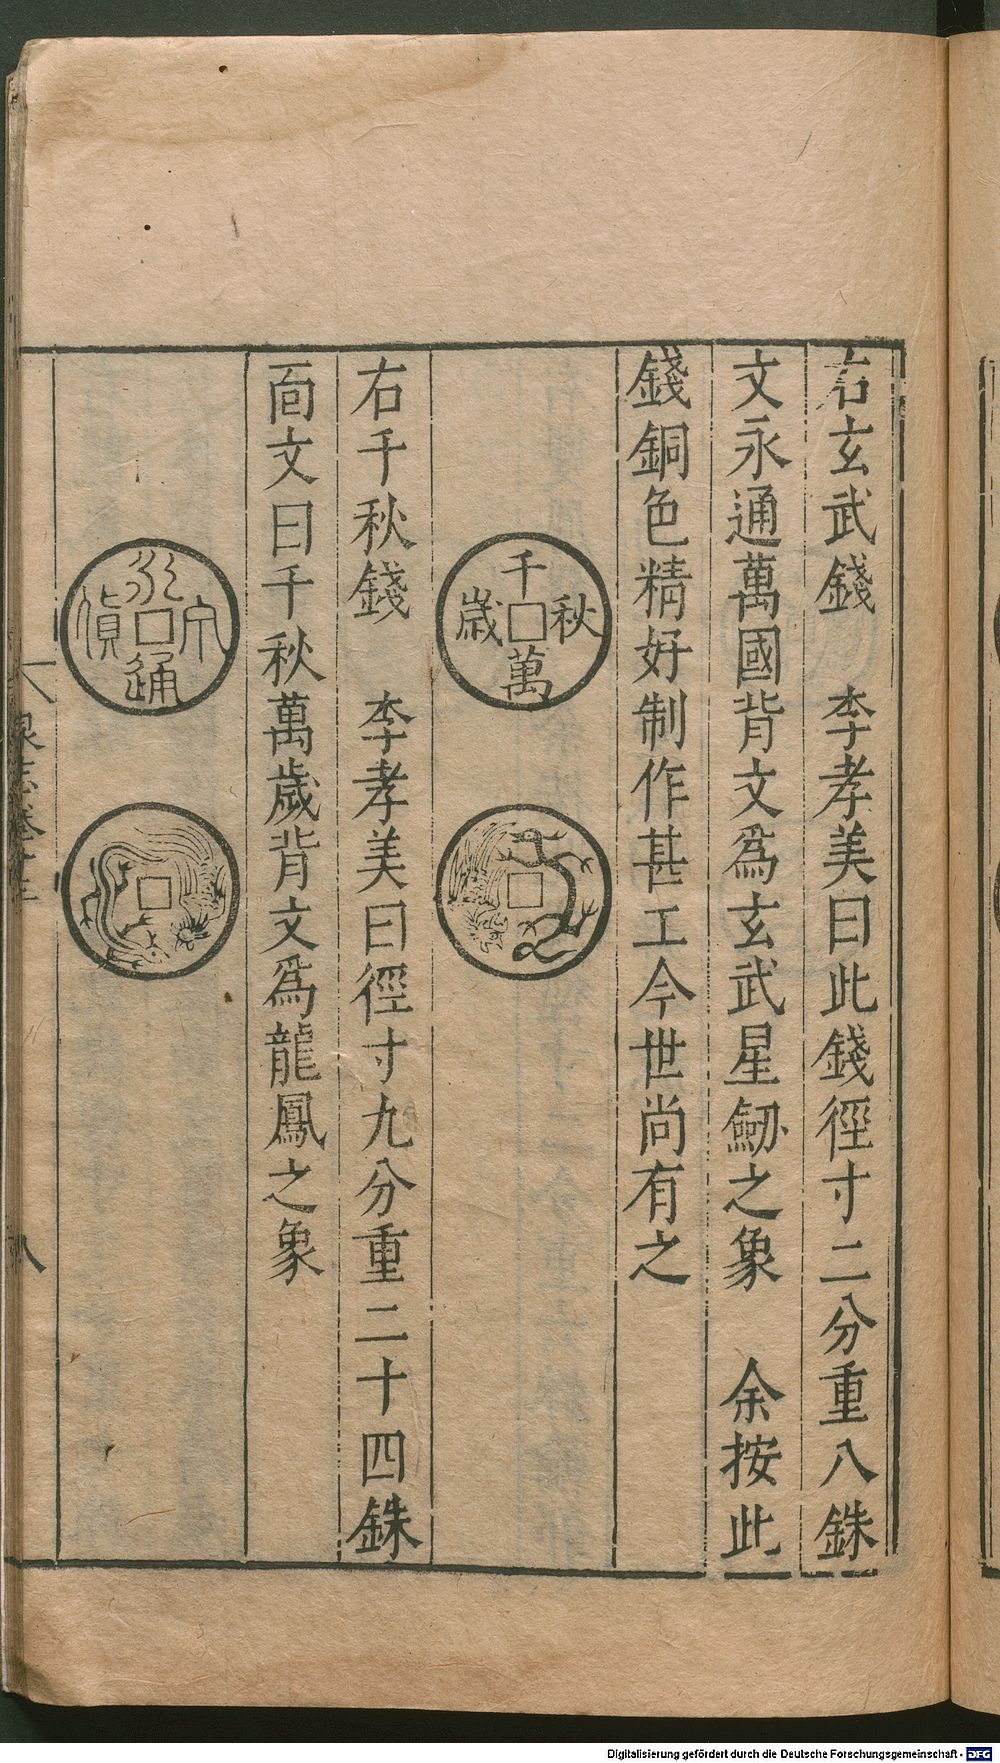 右玄武錢　李孝美曰此錢徑寸二分重八銖
文永通萬國背文爲玄武星劒之象　余按此
錢銅色精好制作甚工今世尚有之
千秋萬歲
右千秋錢　李孝美曰徑寸九分重二十四銖
面文曰千秋萬歲背文爲龍鳳之象
通貨
八
Digitalisierung gefördert durch die Deutsche Forschungsgemeinschaft - DFG